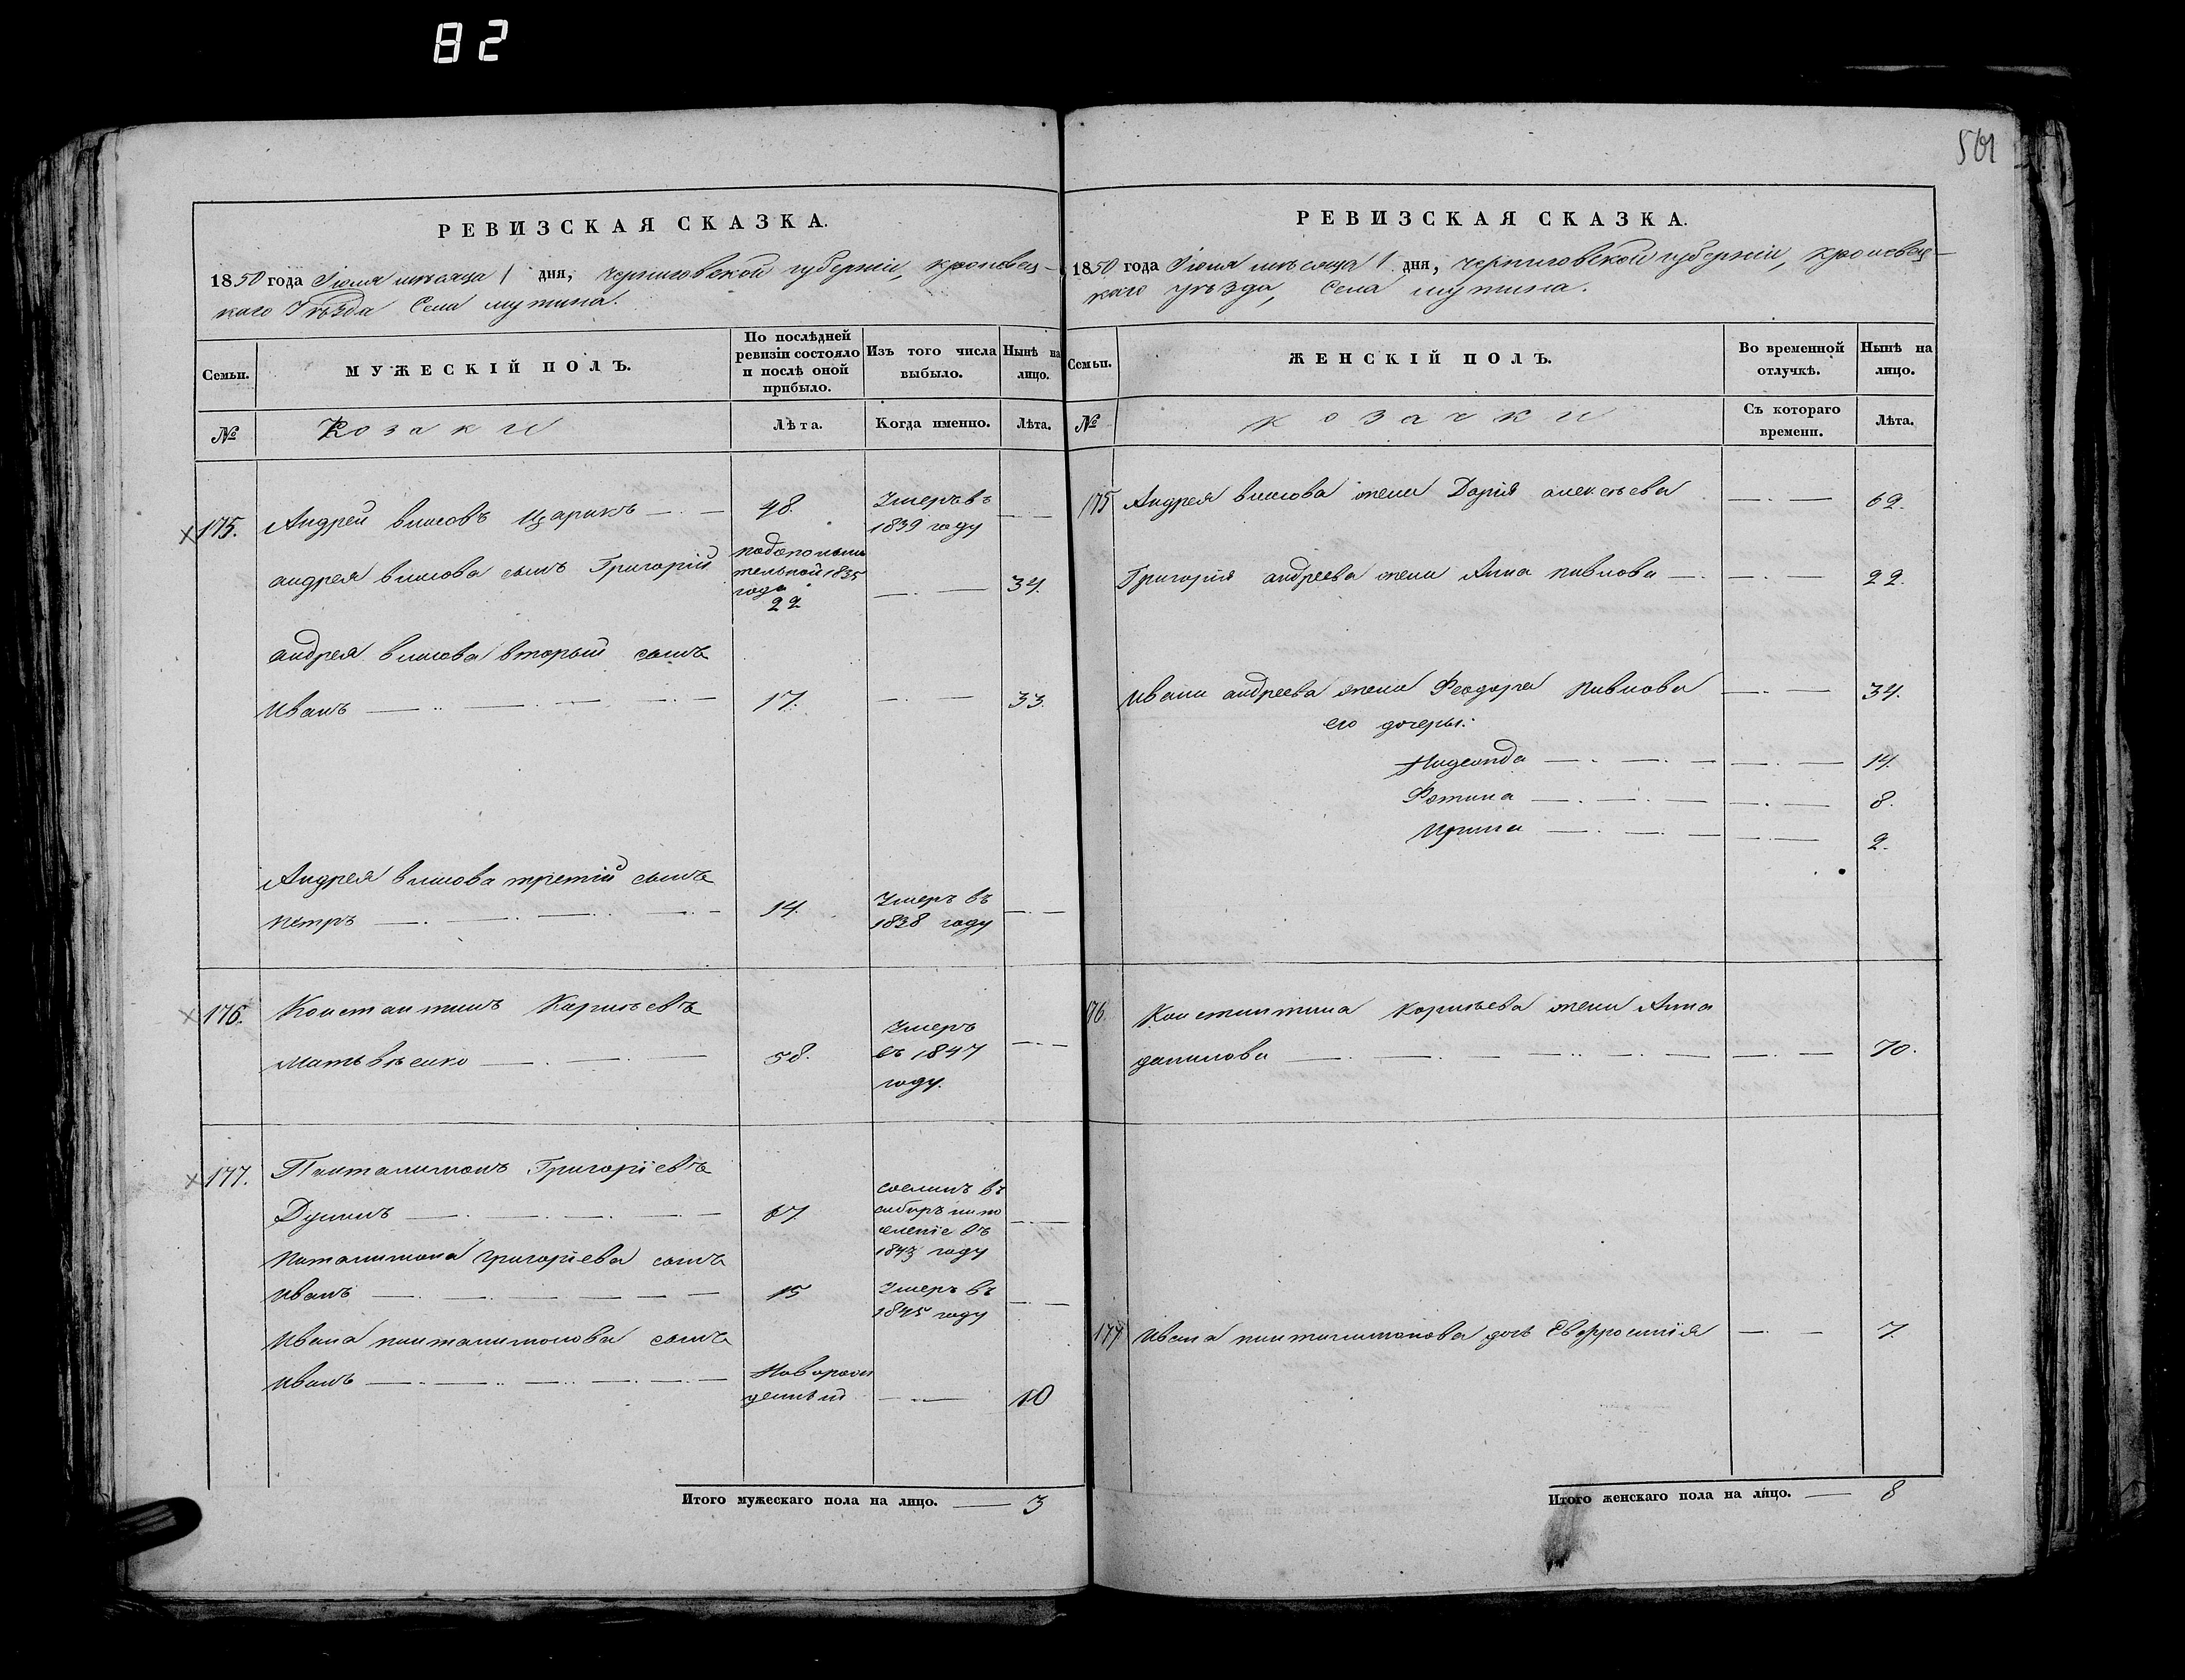 82
561
РЕВИЗСКАЯ СКАЗКА.
1850 года Іюля мѣсяца 1 дня, Черниговской губерніи, Кролевец-
каго Уѣзда Села Мутина.
Семьи.
МУЖЕСКІЙ ПОЛЪ.
По послѣдней
ревизіи состояло
и послѣ оной
прибыло.
Изъ того числа
выбыло.
Нынѣ на
лицо.
№
Козаки
Лѣта.
Когда именно.
Лѣта.
175. Андрей Власовъ Царикъ 48. Умеръ въ
1839 году
Андрея Власова сынъ Григорій
по дополни
тельной 1835
года
22 34.
Андрея Власова вторый сынъ
Иванъ 17. 33.
Андрея Власова третій сынъ
Петръ 14. Умеръ въ
1838 году
176. Константинъ Карнѣевъ
Матьвѣенко 58. Умеръ
въ 1847
году.
177. Панталимонъ Григоріевъ
67. сосланъ въ
сибирь на по
селеніе въ
1843 году
Понталимона Григоріева сынъ
Иванъ 15 Умеръ въ
1845 году
Ивана Панталимонова сынъ
Иванъ Наворож
денный 10
Итого мужескаго пола на лицо. 3
РЕВИЗСКАЯ СКАЗКА.
1850 года Іюля мѣсяца 1 дня, Черниговской губерніи, Кролевец-
каго уѣзда, Села Мутина.
Семьи.
ЖЕНСКІЙ ПОЛЪ.
Во временной
отлучкѣ.
Нынѣ на
лицо.
№
Козачки
Съ котораго
времени.
Лѣта.
175 Андрея Власова жена Дарія Алексѣева 62.
Григорія Андреева жена Анна Павлова 22.
Ивана Андреева жена Феодора Павлова 34.
его дочеры:
14.
Фотина 8.
Ирина 2.
176. Константина Карнѣева жена Анна
Данилова 70.
177 Ивана Панталимонова дочь Евфросинія 7.
Итого женскаго пола на лицо. 8